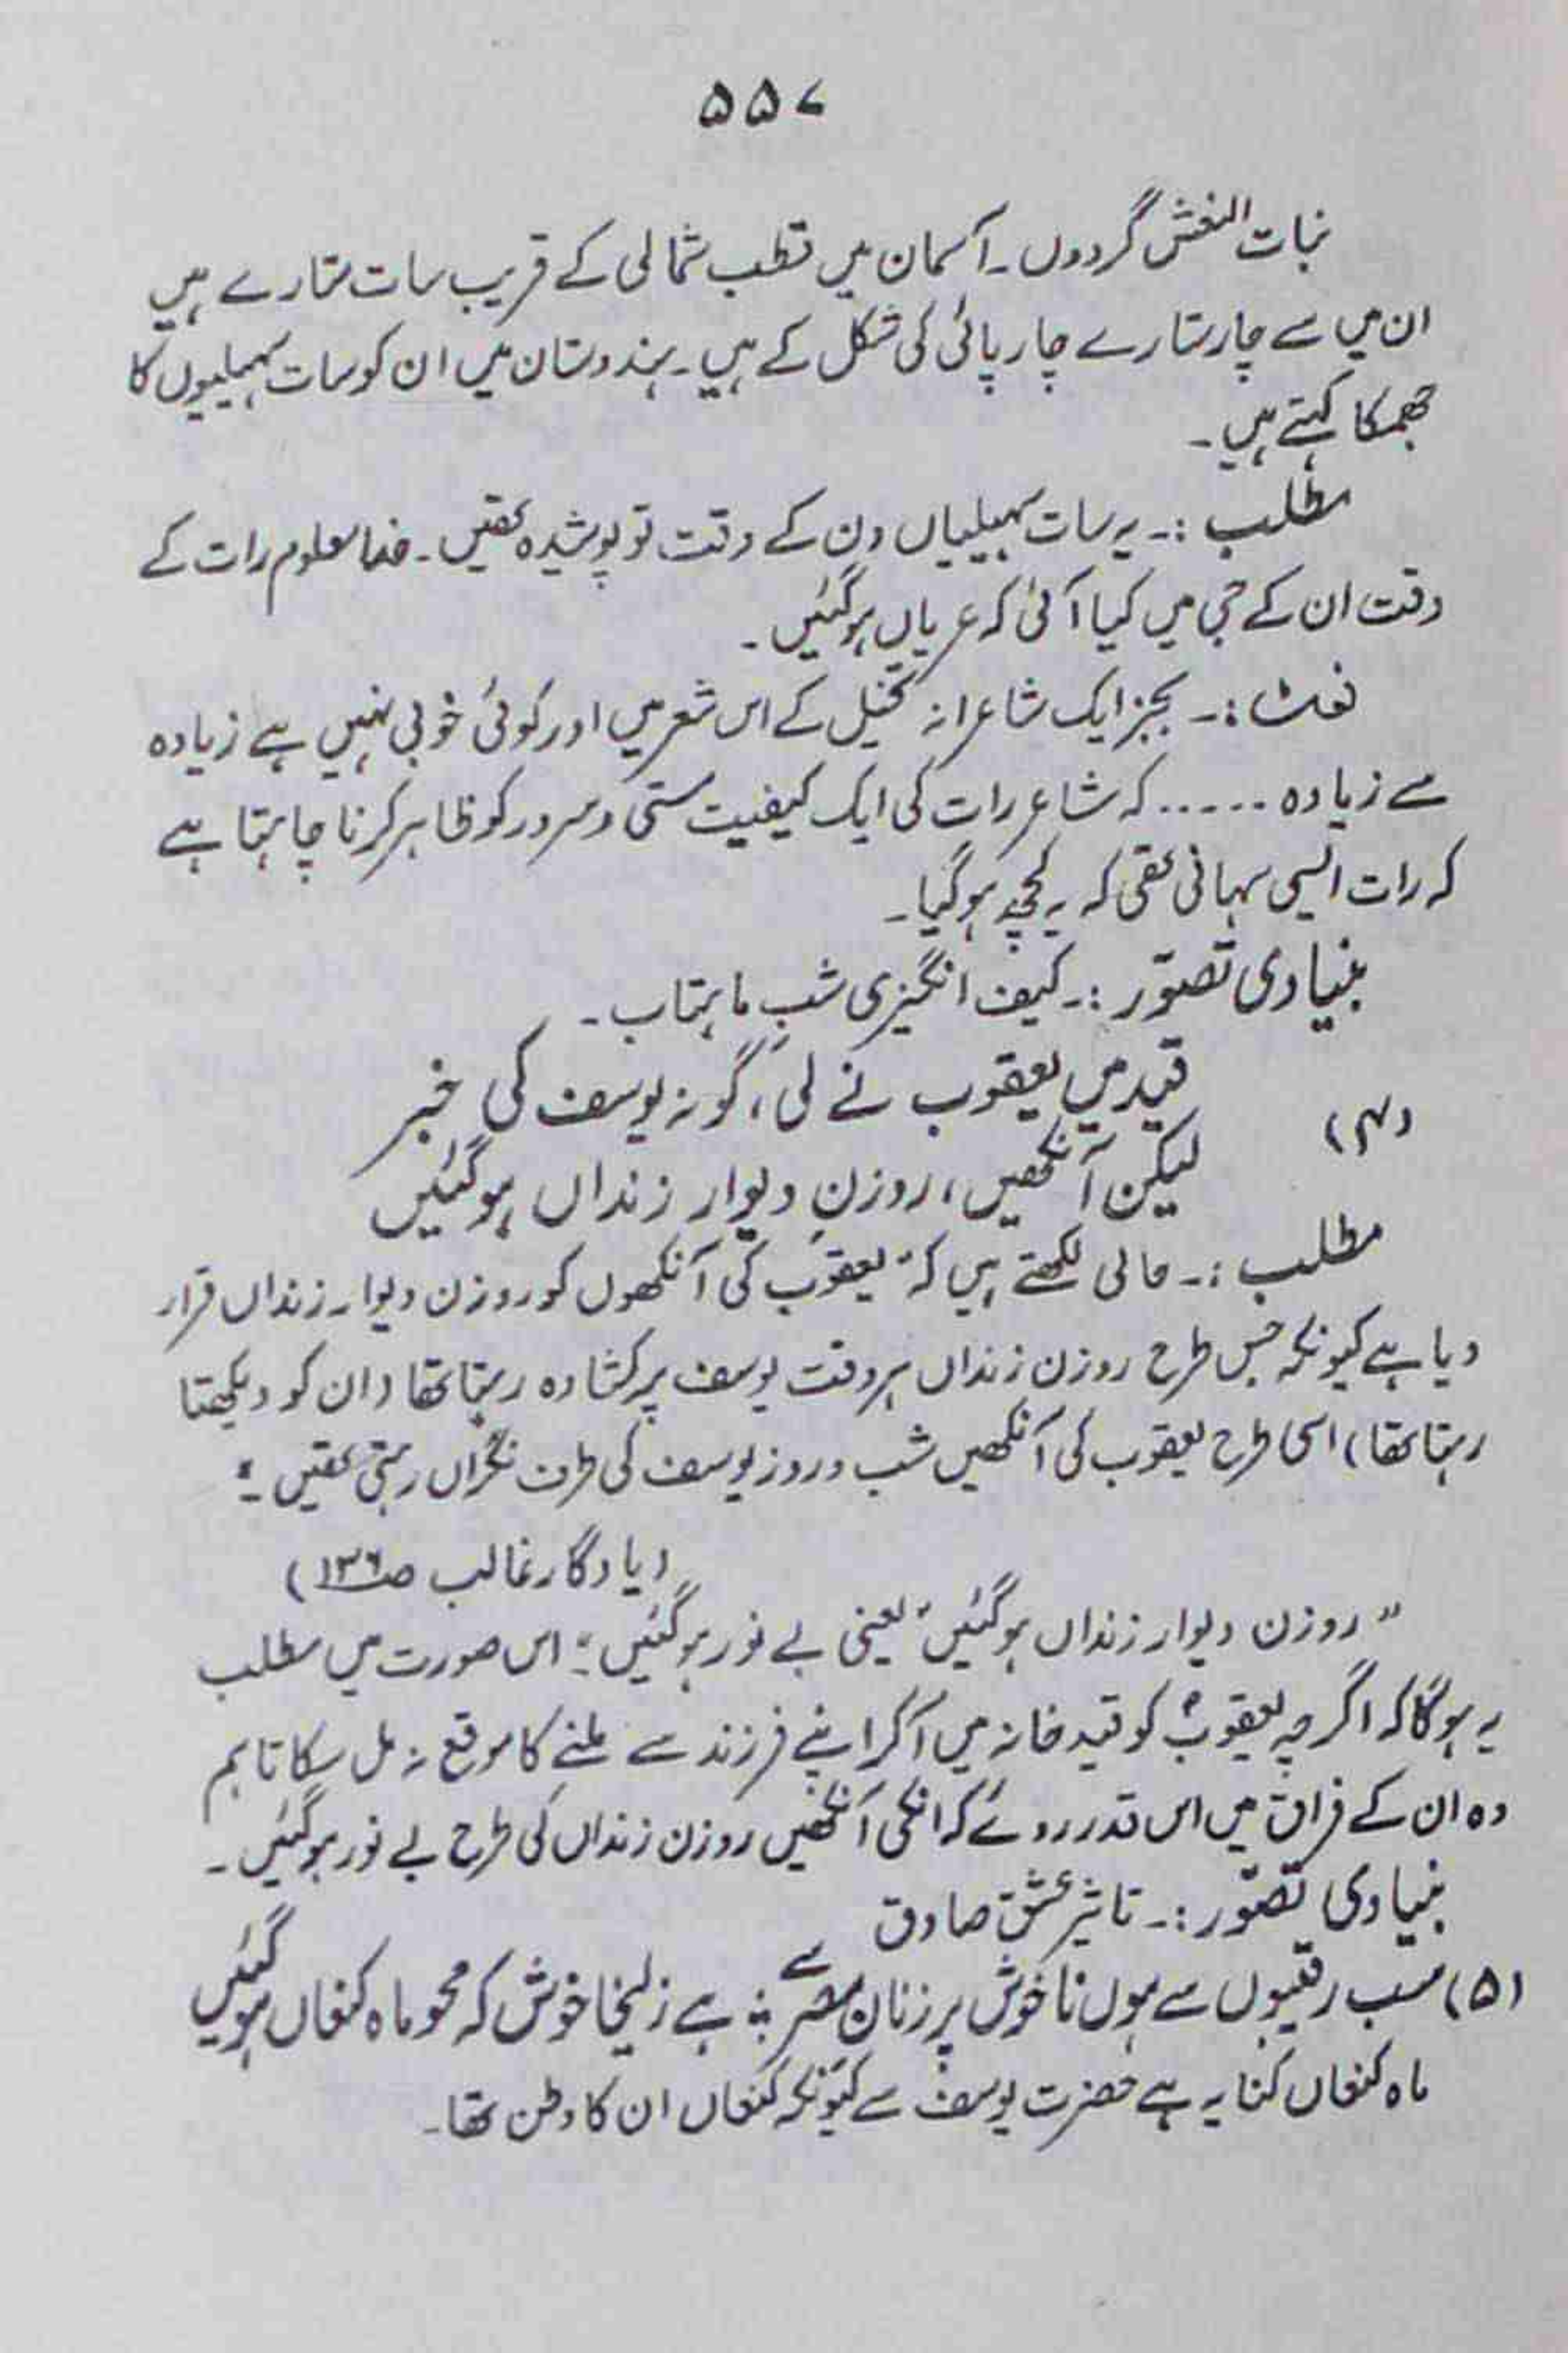 ۵۵۷
نبات النعش گردوں ۔ آسمان میں قطب شمالی کے قریب سات ستارے ہیں
ان میں سے چار ستارے چار پائی کی شکل کے ہیں ۔ ہندوستان میں ان کو سات سہیلیوں کا
جھمکا کہتے ہیں ۔
مطلب :۔ یہ سات سہیلیاں دن کے وقت تو پوشیدہ تھیں ۔ خدا معلوم رات کے
وقت ان کے جی میں کیا آئی کہ عریاں ہوگئیں ۔
نوٹ :۔ بجز ایک شاعرانہ تخیل کے اس شعر میں اور کوئی خوبی نہیں ہے زیادہ
سے زیادہ ..... کہ شاعر رات کی ایک کیفیت مستی و سرور کو ظاہر کرنا چاہتا ہے
کہ رات ایسی سہانی تھی کہ یہ کچھ ہوگیا ۔
بنیادی تصوّر :۔ کیف انگیزی شبِ ماہتاب ۔
قید میں یعقوب نے لی، گو نہ یوسف کی خبر
(۴)
لیکن آنکھیں، روزنِ دیوارِ زنداں ہوگئیں
مطلب :۔ حالی لکھتے ہیں کہ "یعقوب کی آنکھوں کو روزن دیوار زنداں قرار
دیا ہے کیونکہ جس طرح روزن زنداں ہر وقت یوسف پر کشادہ رہتا تھا (ان کو دیکھتا
رہتا تھا) اسی طرح یعقوب کی آنکھیں شب و روز یوسف کی طرف نگراں رہتی تھیں ۔"
(یادگار غالب صـ۱۳۶)
"روزن دیوار زنداں ہوگئیں" یعنی بے نور ہوگئیں ۔" اس صورت میں مطلب
یہ ہوگا کہ اگرچہ یعقوبؑ کو قید خانہ میں آکر اپنے فرزند سے ملنے کا موقع نہ مل سکا تاہم
وہ ان کے فراق میں اس قدر روئے کہ انکی آنکھیں روزن زنداں کی طرح بے نور ہوگئیں ۔
بنیادی تصوّر :۔ تاثیر عشق صادق
(۵) سب رقیبوں سے ہوں ناخوش پر زنانِ مصر سے ؛ ہے زلیخا خوش کہ محو ماہ کنعاں ہوگئیں
ماہ کنعاں کنایہ ہے حضرت یوسفؑ سے کیونکہ کنعاں ان کا وطن تھا ۔